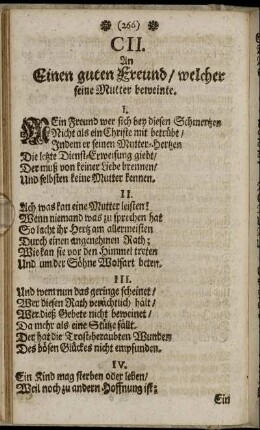 (266)
CII.
An
Einen guten Freund/ welcher
seine Mutter beweinte.
I.
MEin Freund wer sich bey diesen Schmertzen
Nicht als ein Christe mit betrübt/
Indem er seinen Mutter-Hertzen
Die letzte Dienst-Erweisung giebt/
Der muß von keiner Liebe brennen/
Und selbsten keine Mutter kennen.
II.
Ach was kan eine Mutter leisten!
Wenn niemand was zu sprechen hat
So lacht ihr Hertz am allermeisten
Durch einen angenehmen Rath;
Wie kan sie vor den Himmel treten
Und um der Söhne Wolfart beten.
III.
Und wem nun das geringe scheinet/
Wer diesen Rath verächtlich hält/
Wer dieß Gebete nicht beweinet/
Da mehr als eine Stütze fällt.
Der hat die Trost-beraubten Wunden
Des bösen Glückes nicht empfunden.
IV.
Ein Kind mag sterben oder leben/
Weil noch zu andern Hoffnung ist;
Ein